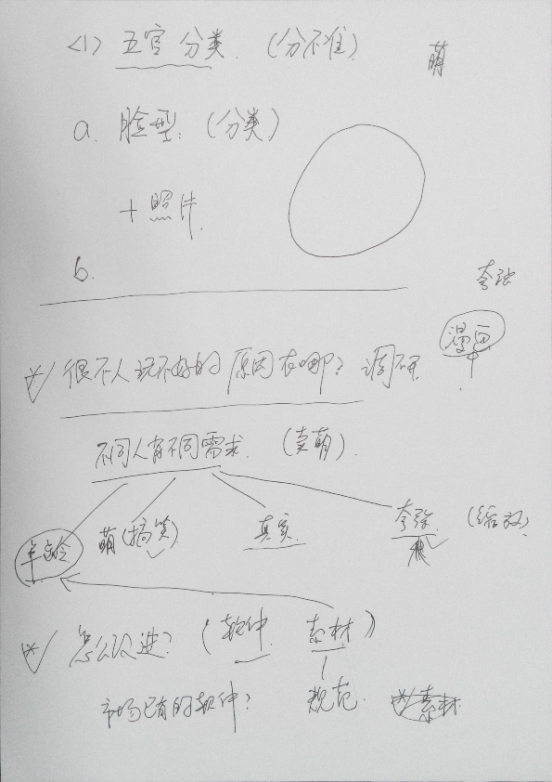 <1> 五官分类 (分不准)
萌
a. 脸型. (分类)
+ 照片
b.
夸张
漫画
很不人玩不好的原因在哪? 调研
不同人有不同需求. (卖萌).
年龄 萌(搞笑) 真实 夸张 (缩放)
怎么改进? (软件 素材)
市场已有的软件? 规范. 素材